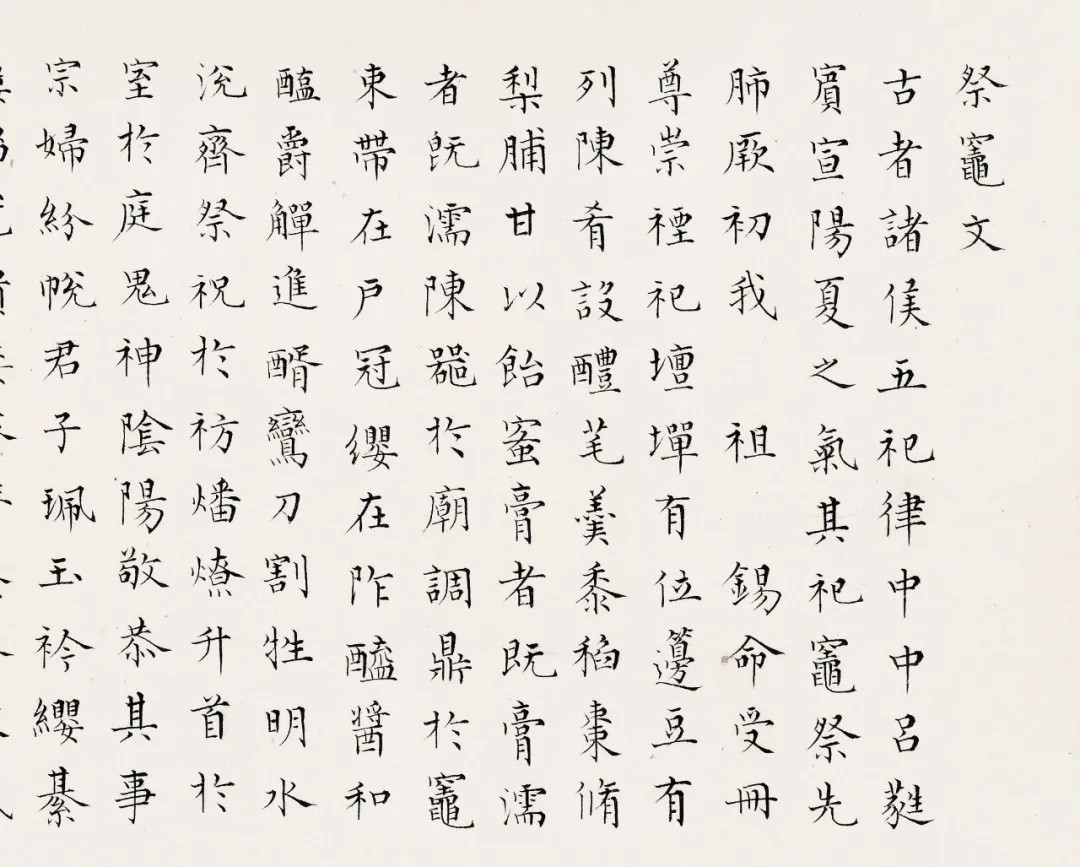 祭竈文
古者諸侯五祀律中中呂蕤
賓宣陽夏之氣其祀竈祭先
肺厥初我 祖 錫命受冊
尊崇禋祀壇墠有位籩豆有
列陳肴設醴芼羹黍稻棗脩
梨脯甘以飴蜜膏者既膏濡
者既濡陳器於廟調鼎於竈
束帶在戶冠纓在阼醯醬和
醞爵觶進醑鸞刀割牲明水
涗齊祭祝於祊燔燎升首於
室於庭鬼神陰陽敬恭其事
宗婦紛帨君子珮玉衿纓綦